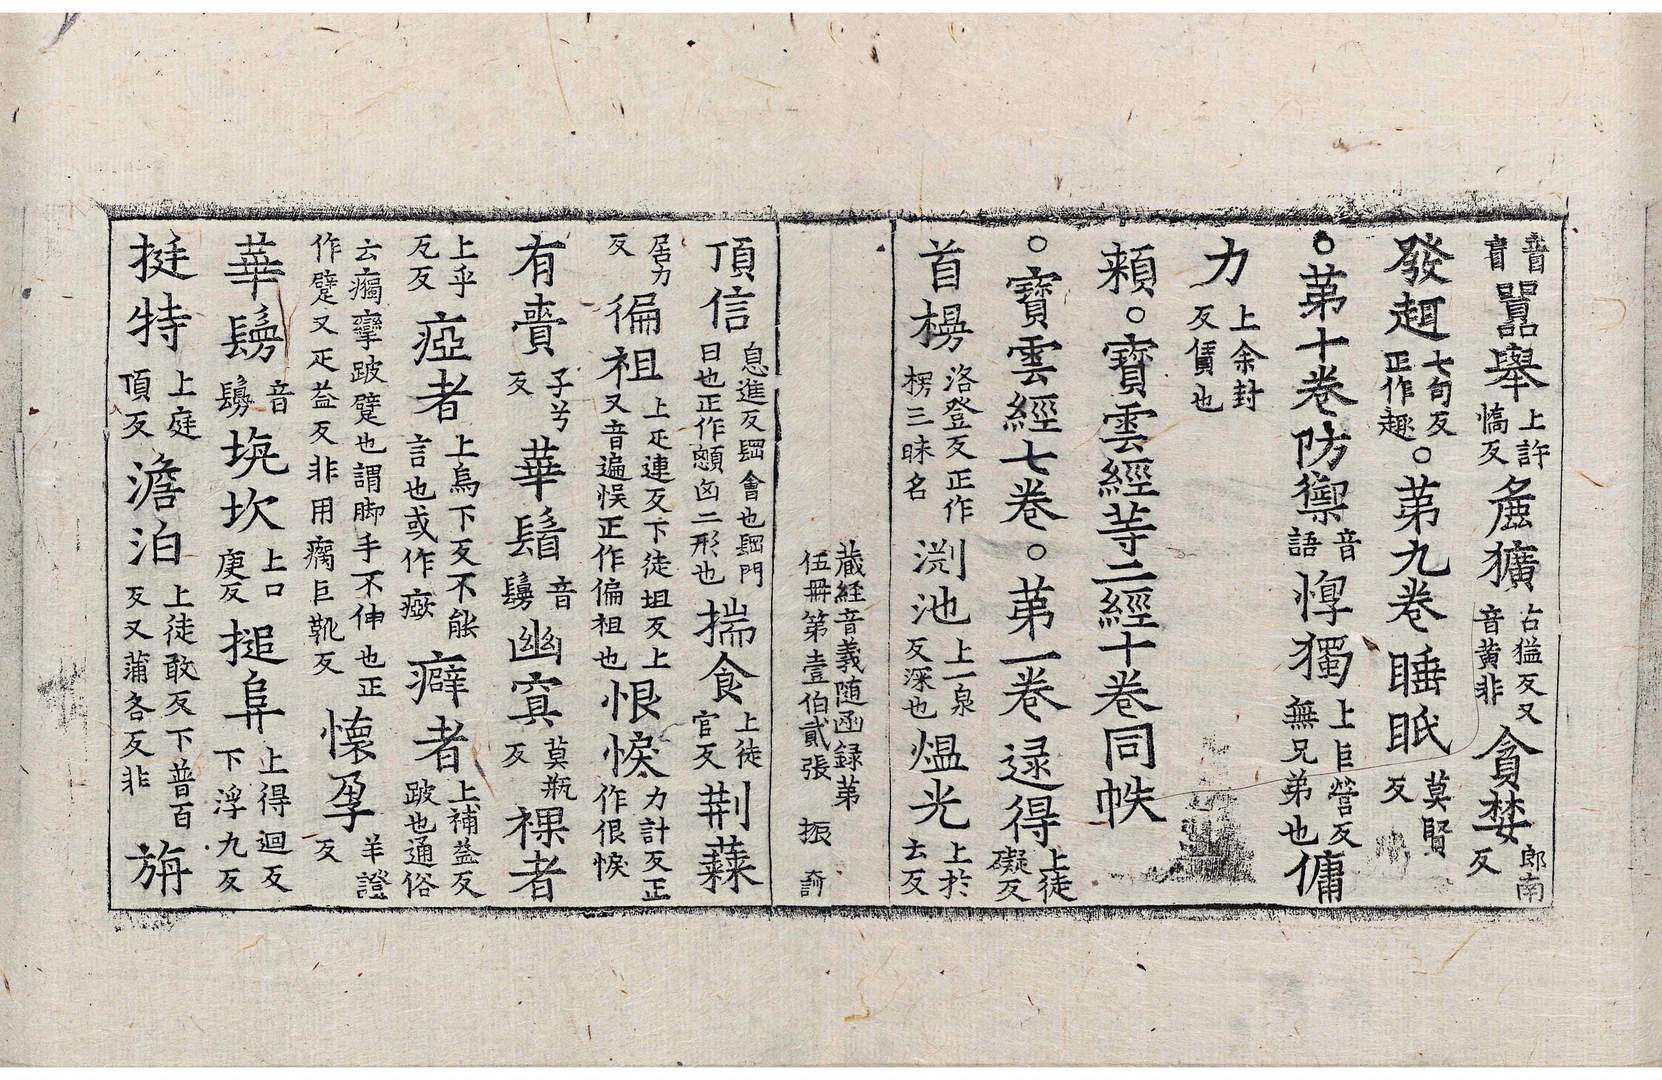 音盲囂舉上許憍反麁獷古猛反又音黃非貪婪郎南反
發趄七句反正作趣。第九卷睡眠莫賢反
。第十卷防禦音語惸獨上巨營反無兄弟也傭
力上余封反賃也
賴。寶雲經等二經十卷同帙
。寶雲經七卷。第一卷逯得上徒礙反
首楞洛登反正作楞三昧名渕池上一泉反深也熅光上於云反
藏經音義随函録第伍冊第壹伯貳張 振 奇
頂信息進反囟會也囟門曰也正作顖囟二形也揣食上徒官反荆蕀
居力反徧袒上疋連反下徒坦反上又音遍悮正作偏袒也恨悷力計反正作很悷
有賷子兮反華鬘音鬘幽㝠莫瓶反裸者
上乎瓦反瘂者上烏下反不能言也或作瘂癖者上補益反跛也通俗
云癵攣跛躄也謂脚手不伸也正作躄又疋益反非用癘巨靴反懷孕羊證反
華鬘音鬘坑坎上口庚反搥阜上得迴反下浮九反
挺特上庭頂反澹泊上徒敢反下普百反又蒲各反非旃